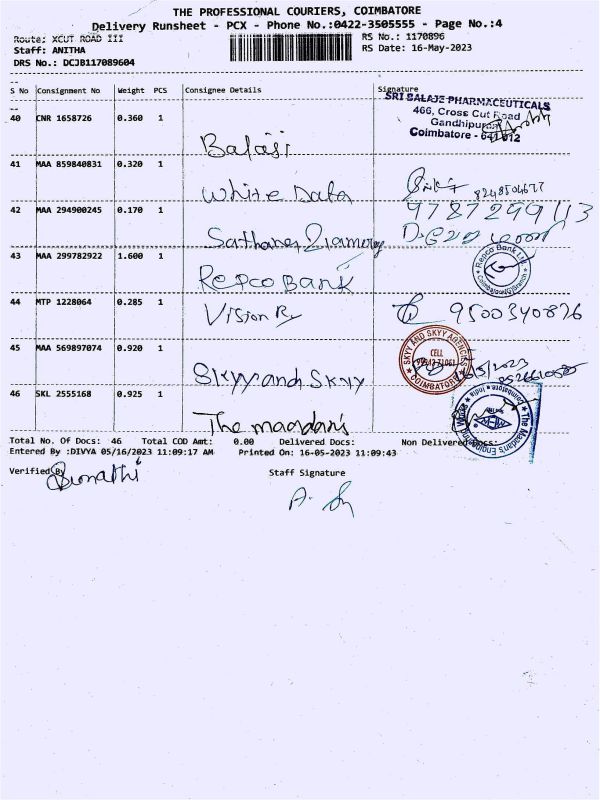 THE PROFESSIONAL COURIERS, COIMBATORE
Delivery Runsheet - PCX - Phone No.:0422-3505555 - Page No.:4
Route: XCUT ROAD III RS No.: 1170896
Staff: ANITHA RS Date: 16-May-2023
DRS No.: DCJB117089604
S No Consignment No Weight PCS Consignee Details Signature
40 CNR 1658726 0.360 1 Balaji
SRI BALAJE PHARMACEUTICALS
466, Cross Cut Road
Gandhipuram
Coimbatore - 641 012
41 MAA 859840831 0.320 1 White Data
42 MAA 294900245 0.170 1 9787299113
43 MAA 299782922 1.600 1 Repco Bank
Repco Bank Ltd
44 MTP 1228064 0.285 1 Vision Ry 9500340826
45 MAA 569897074 0.920 1 Skyy and Skyy
SKYY AND SKYY AGENCIES
CELL
COIMBATORE
46 SKL 2555168 0.925 1 The maadan's
The Maadan's Engineering Works
Coimbatore India
Total No. Of Docs: 46 Total COD Amt: 0.00 Delivered Docs: Non Delivered Docs:
Entered By :DIVYA 05/16/2023 11:09:17 AM Printed On: 16-05-2023 11:09:43
Verified By Staff Signature